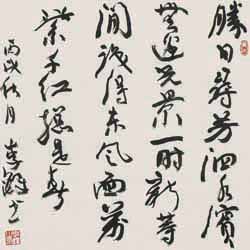 勝日尋芳泗水濱
無邊光景一時新等
閒識得東風面萬
紫千紅總是春
丙戌秋月 李